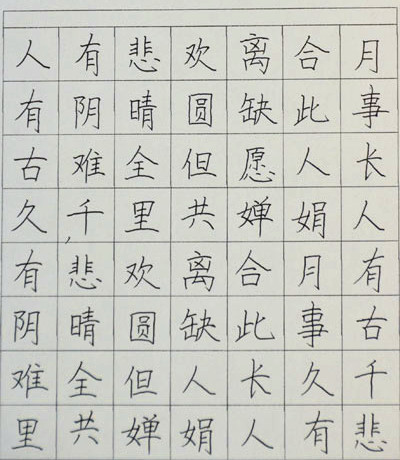 人有悲欢离合月
有阴晴圆缺此事
古难全但愿人长
久千里共婵娟人
有悲欢离合月有
阴晴圆缺此事古
难全但人长久千
里共婵娟人有悲